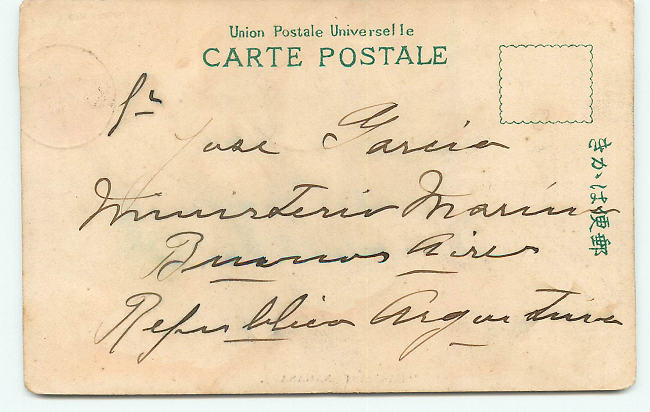 Union Postale Universelle
CARTE POSTALE
Sr
Jose Garcia
Ministerio Marina
Buenos Aires
Republica Argentina
郵便はかき